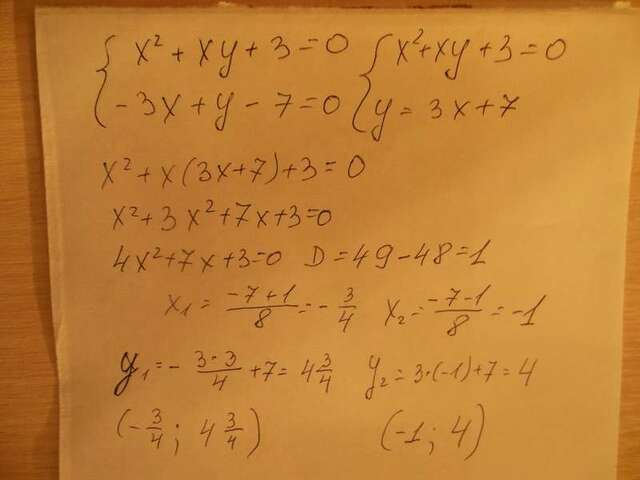 { x² + xy + 3 = 0 { x² + xy + 3 = 0
{ -3x + y - 7 = 0 { y = 3x + 7
x² + x(3x + 7) + 3 = 0
x² + 3x² + 7x + 3 = 0
4x² + 7x + 3 = 0 D = 49 - 48 = 1
x₁ = (-7+1)/8 = -3/4 x₂ = (-7-1)/8 = -1
y₁ = - (3·3)/4 + 7 = 4 3/4 y₂ = 3·(-1) + 7 = 4
(-3/4; 4 3/4) (-1; 4)